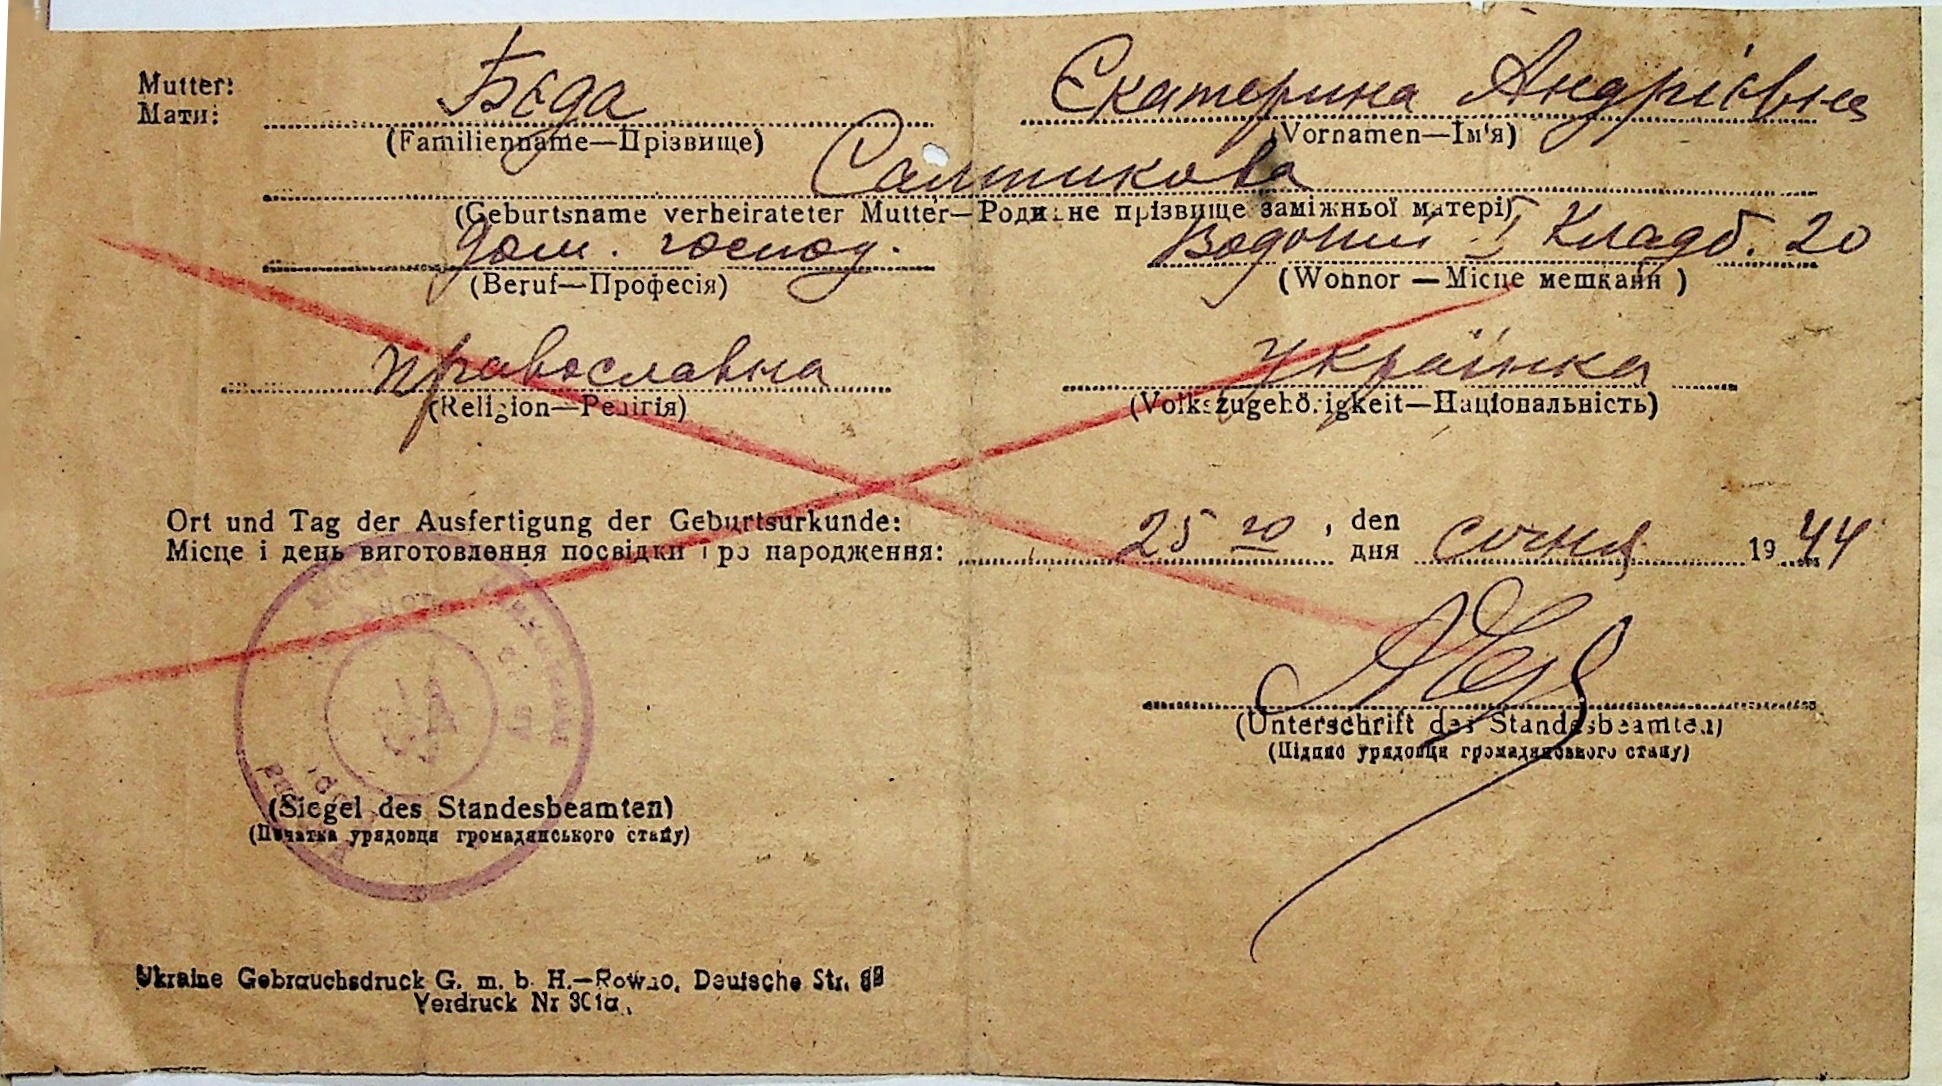 Mutter:
Мати:
Бєда Єкатерина Андрієвна
(Familienname—Прізвище) (Vornamen—Ім'я)
Салтикова
(Geburtsname verheirateter Mutter—Родинне прізвище заміжньої матері)
дом. господ. Водопій Кладб. 20
(Beruf—Професія) (Wohnor —Місце мешкання )
православна Українка
(Religion—Релігія) (Volkszugehörigkeit—Національність)
Ort und Tag der Ausfertigung der Geburtsurkunde: den
Місце і день виготовлення посвідки про народження: 25 го, дня сочня 1944
(Unterschrift des Standesbeamten)
(Підпис урядовця громадянського стану)
(Siegel des Standesbeamten)
(Печатка урядовця громадянського стану)
Ukraine Gebrauchsdruck G. m. b. H.—Rowno, Deutsche Str.
Verdruck Nr 301a.